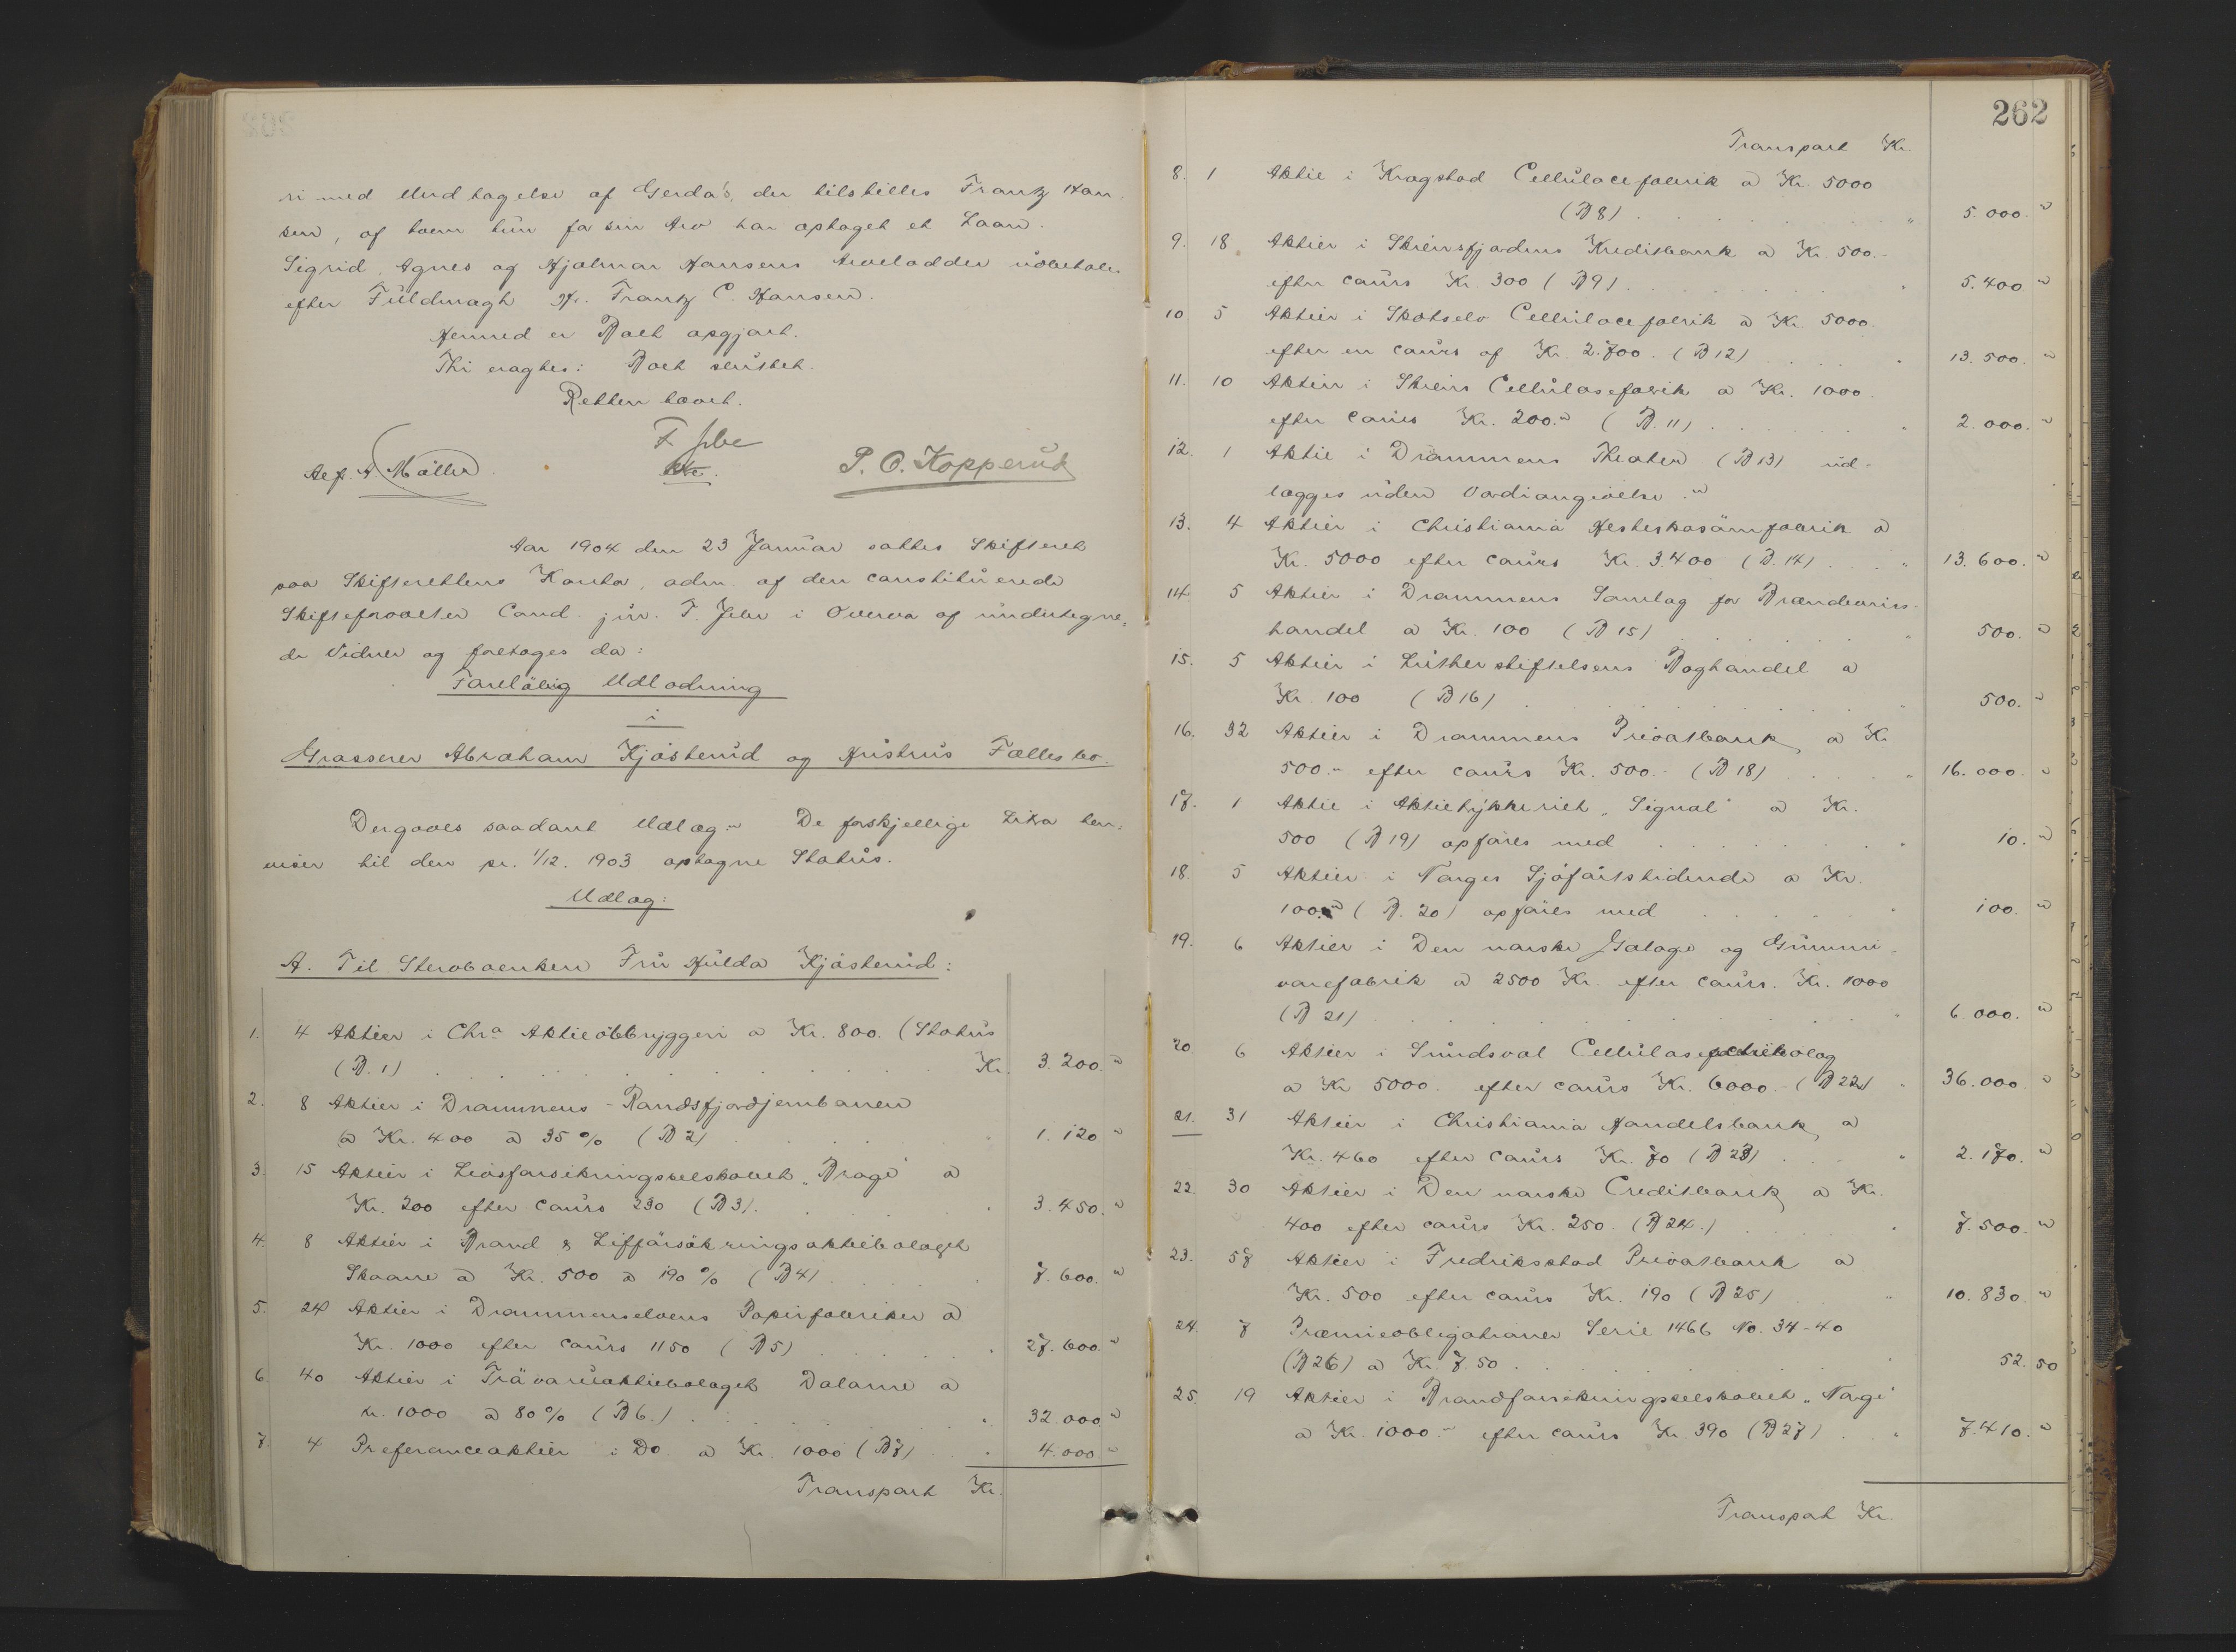 ri med Undtagelse af Gerda's, der tilstilles Frantz Han-
sen, af hvem hun for sin Arv har optaget et Laan.
Sigrid, Agnes og Hjalmar Hansens Arvelodder udbetales
efter Fuldmagt Hr. Frantz C. Hansen.
Hermed er Boet opgjort.
Thi eragtes: Boet sluttet.
Retten hævet.
F. Jebe
Møller
P. O. Kopperud
Aar 1904 den 23 Januar sattes Skifteret
paa Skifterettens Kontor, adm. af den constituerede
Skifteforvalter Cand. jur. F. Jebe i Overvær af undertegne-
de Vidner og foretoges da:
Foreløbig Udlodning
i
Grosserer Abraham Kjøsterud og Hustrus Fællesbo.
Der gaves saadant Udlæg: De forskjellige Litra hen-
viser til den pr. 1/12. 1903 optagne Status.
Udlæg:
A. Til Stervboenken Fru Hulda Kjøsterud:
1. 4 Aktier i Chra Aktieølbryggeri a Kr. 800. (Status
(B. 1) Kr. 3.200.
2. 8 Aktier i Drammens-Randsfjordjernbanen
a Kr. 400 a 35 % (B 2) " 1.120
3. 15 Aktier i Livsforsikringsselskabet „Brage" a
Kr. 200 efter Caurs 230 (B 3). " 3.450.
4. 8 Aktier i Brand & Lifförsäkringsaktiebolaget
Skaane a Kr. 500 a 190 % (B 4) " 7.600.
5. 24 Aktier i Drammenselvens Papirfabriker a
Kr. 1000 efter Caurs 1150 (B 5) " 27.600
6. 40 Aktier i Trävaruaktiebolaget Dalarne a
Kr. 1000 a 80 % (B 6.) " 32.000
7. 4 Preferanceaktier i Do a Kr. 1000 (B 7) " 4.000
Transport Kr.
262
Transport Kr.
8. 1 Aktie i Krogstad Cellulosefabrik a Kr. 5000
(B 8) " 5.000.
9. 18 Aktier i Skiensfjordens Kreditbank a Kr. 500.-
efter caurs Kr. 300 (B 9) " 5.400
10 5 Aktier i Skotselv Cellulosefabrik a Kr. 5000.
efter en caurs af Kr. 2.700. (B 12) " 13.500.
11. 10 Aktier i Skiens Cellulosefabrik a Kr. 1000.
efter Caurs Kr. 200. (B. 11) " 2.000.
12. 1 Aktie i Drammens Theater (B 13) ud-
lægges uden Værdiangivelse.
13. 4 Aktier i Christiania Hesteskosømfabrik a
Kr. 5000 efter caurs Kr. 3.400 (B. 14) " 13.600.
14. 5 Aktier i Drammens Samlag for Brændevins-
handel a Kr. 100 (B 15) " 500.
15. 5 Aktier i Lutherstiftelsens Boghandel a
Kr. 100 (B 16) " 500.
16. 32 Aktier i Drammens Privatbank a Kr
500.- efter caurs Kr. 500.- (B 18) " 16.000
17. 1 Aktie i Aktietrykkeriet „Signal" a Kr.
500 (B 19) opføres med " 10.
18. 5 Aktier i Norges Sjøfartstidende a Kr.
100 (B. 20) opføres med " 100.
19. 6 Aktier i Den norske Galoge og Gummi-
varefabrik a 2500 Kr. efter caurs. Kr. 1000
(B 21) " 6.000.
20 6 Aktier i Sundsval Cellulose
a Kr 5000. efter caurs Kr. 6000.- (B 22) " 36.000
21. 31 Aktier i Christiania Handelsbank a
Kr. 460 efter caurs Kr. 70 (B 23) " 2.170.
22. 30 Aktier i Den norske Creditbank a Kr.
400 efter caurs Kr. 250. (B 24.) " 7.500.
23. 57 Aktier i Fredriksstad Privatbank a
Kr. 500 efter caurs Kr. 190 (B 25) " 10.830
24. 7 Præmieobligationer Serie 1466 No. 34-40
(B 26) a Kr. 7.50 " 52.50
25. 19 Aktier i Brandforsikringsselskabet „Norge"
a Kr. 1000.- efter caurs Kr. 390 (B 27) " 7.410.
Transport Kr.